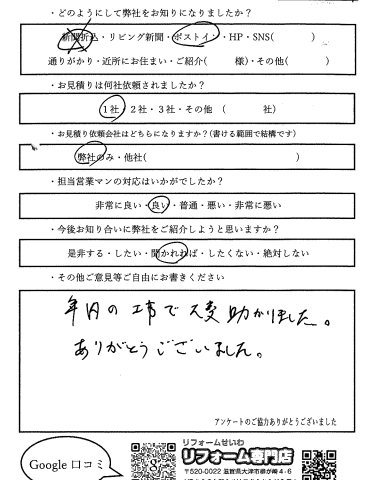 ・どのようにして弊社をお知りになりましたか？
新聞折込・リビング新聞・ポストイン・HP・SNS(　　　)
通りがかり・近所にお住まい・ご紹介(　　　様)・その他(　　　)
・お見積りは何社依頼されましたか？
1社・2社・3社・その他　(　　　社)
・お見積り依頼会社はどちらになりますか？(書ける範囲で結構です)
弊社のみ・他社(　　　)
・担当営業マンの対応はいかがでしたか？
非常に良い・良い・普通・悪い・非常に悪い
・今後お知り合いに弊社をご紹介しようと思いますか？
是非する・したい・聞かれれば・したくない・絶対しない
・その他ご意見等ご自由にお書きください
年内の工事で大変助かりました。
ありがとうございました。
アンケートのご協力ありがとうございました
Google 口コミ
リフォームせいわ
リフォーム専門店
〒520-0022 滋賀県大津市柳が崎4-6